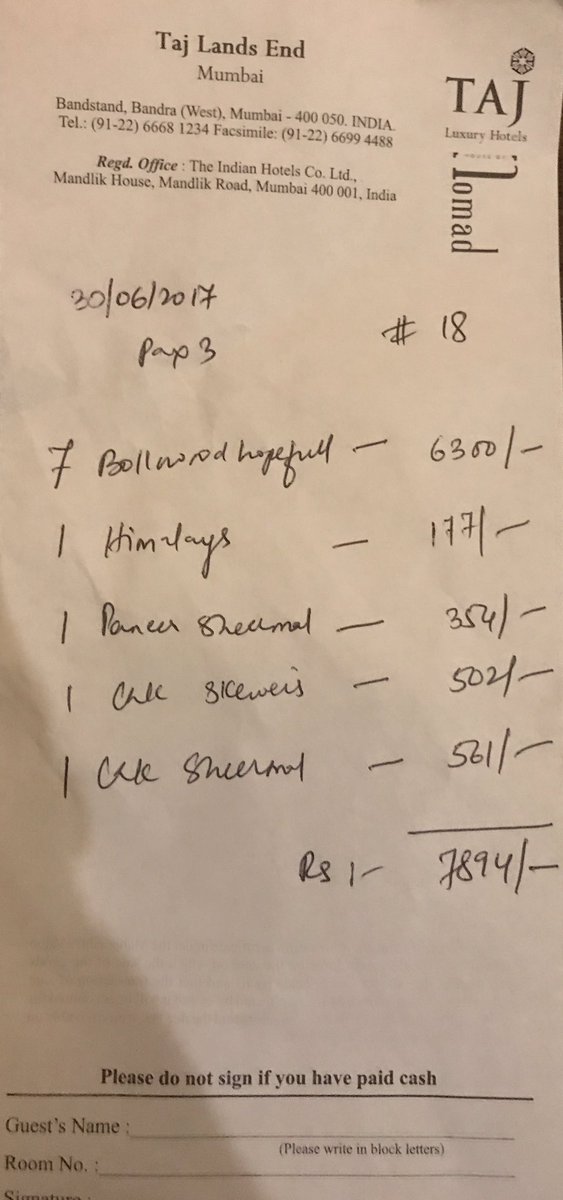 Taj Lands End
Mumbai
Bandstand, Bandra (West), Mumbai - 400 050. INDIA.
Tel.: (91-22) 6668 1234 Facsimile: (91-22) 6699 4488
Regd. Office : The Indian Hotels Co. Ltd.,
Mandlik House, Mandlik Road, Mumbai 400 001, India
TAJ
Luxury Hotels
HOUSE OF
Nomad
30/06/2017
# 18
Pap 3
7 Bollwood hopefull — 6300/-
1 Himalays — 177/-
1 Paneer Sheermal — 354/-
1 skeweis — 502/-
1 Sheermal — 561/-
Rs 7894/-
Please do not sign if you have paid cash
Guest's Name :
(Please write in block letters)
Room No. :
Signature :